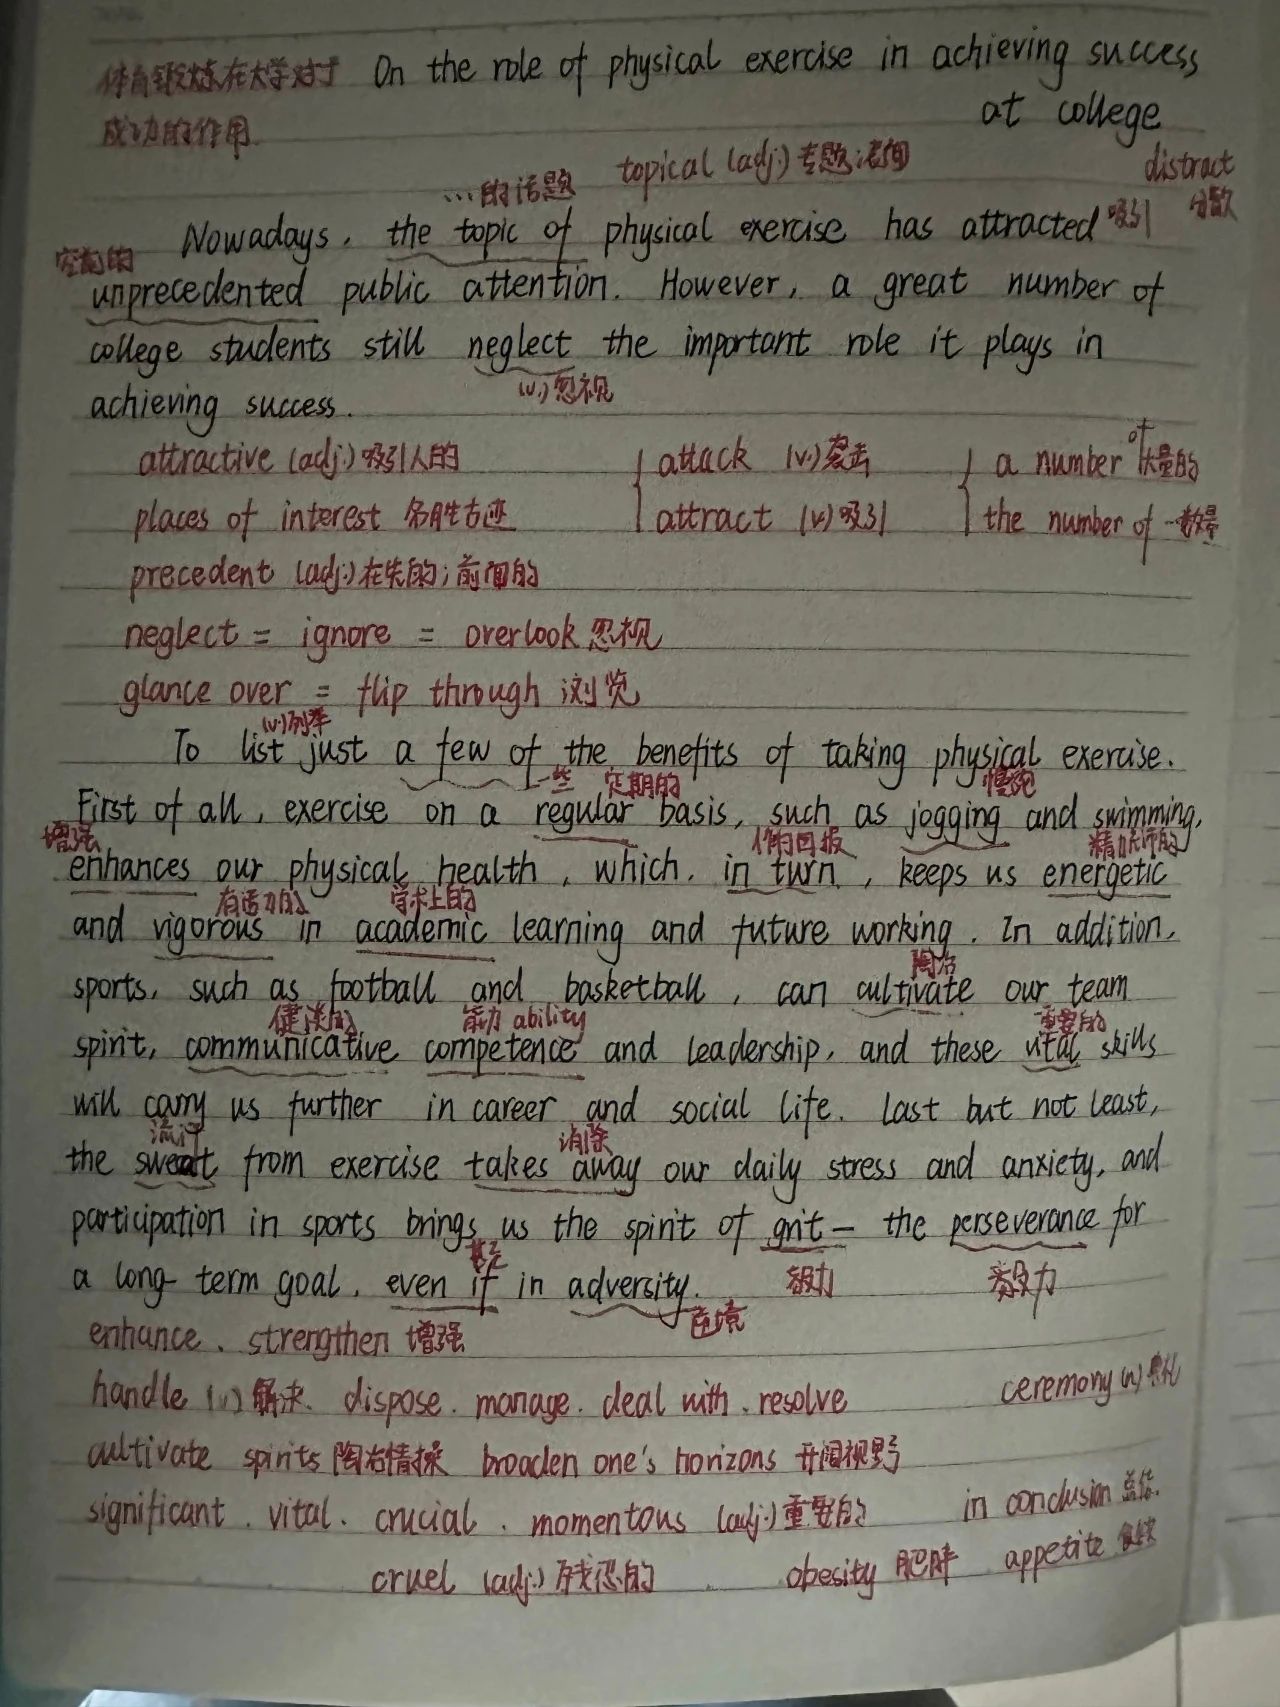 体育锻炼在大学对于 On the role of physical exercise in achieving success
成功的作用 at college
…的话题 topical (adj.) 专题;若闻 distract
Nowadays, the topic of physical exercise has attracted 吸引 分散
空前的
unprecedented public attention. However, a great number of
college students still neglect the important role it plays in
(v.)忽视
achieving success.
attractive (adj.)吸引人的 attack (v.)袭击 a number of 大量的
places of interest 名胜古迹 attract (v.)吸引 the number of …数量
precedent (adj.)在先的;前面的
neglect = ignore = overlook 忽视
glance over = flip through 浏览
(v.)列举
To list just a few of the benefits of taking physical exercise.
一些 定期的 慢跑
First of all, exercise on a regular basis, such as jogging and swimming,
增强 作为回报 精力充沛的
enhances our physical health, which, in turn, keeps us energetic
有活力的 学术上的
and vigorous in academic learning and future working. In addition,
陶冶
sports, such as football and basketball, can cultivate our team
健谈的 能力 ability 重要的
spirit, communicative competence and leadership, and these vital skills
will carry us further in career and social life. Last but not least,
流汗 消除
the sweat from exercise takes away our daily stress and anxiety, and
participation in sports brings us the spirit of grit — the perseverance for
甚至 毅力 毅力
a long term goal, even if in adversity.
逆境
enhance. strengthen 增强
handle (v.)解决. dispose. manage. deal with. resolve ceremony (n) 典礼
cultivate spirits 陶冶情操 broaden one's horizons 开阔视野
significant. vital. crucial. momentous (adj.)重要的 in conclusion 总结
cruel (adj.)残忍的 obesity 肥胖 appetite 食欲